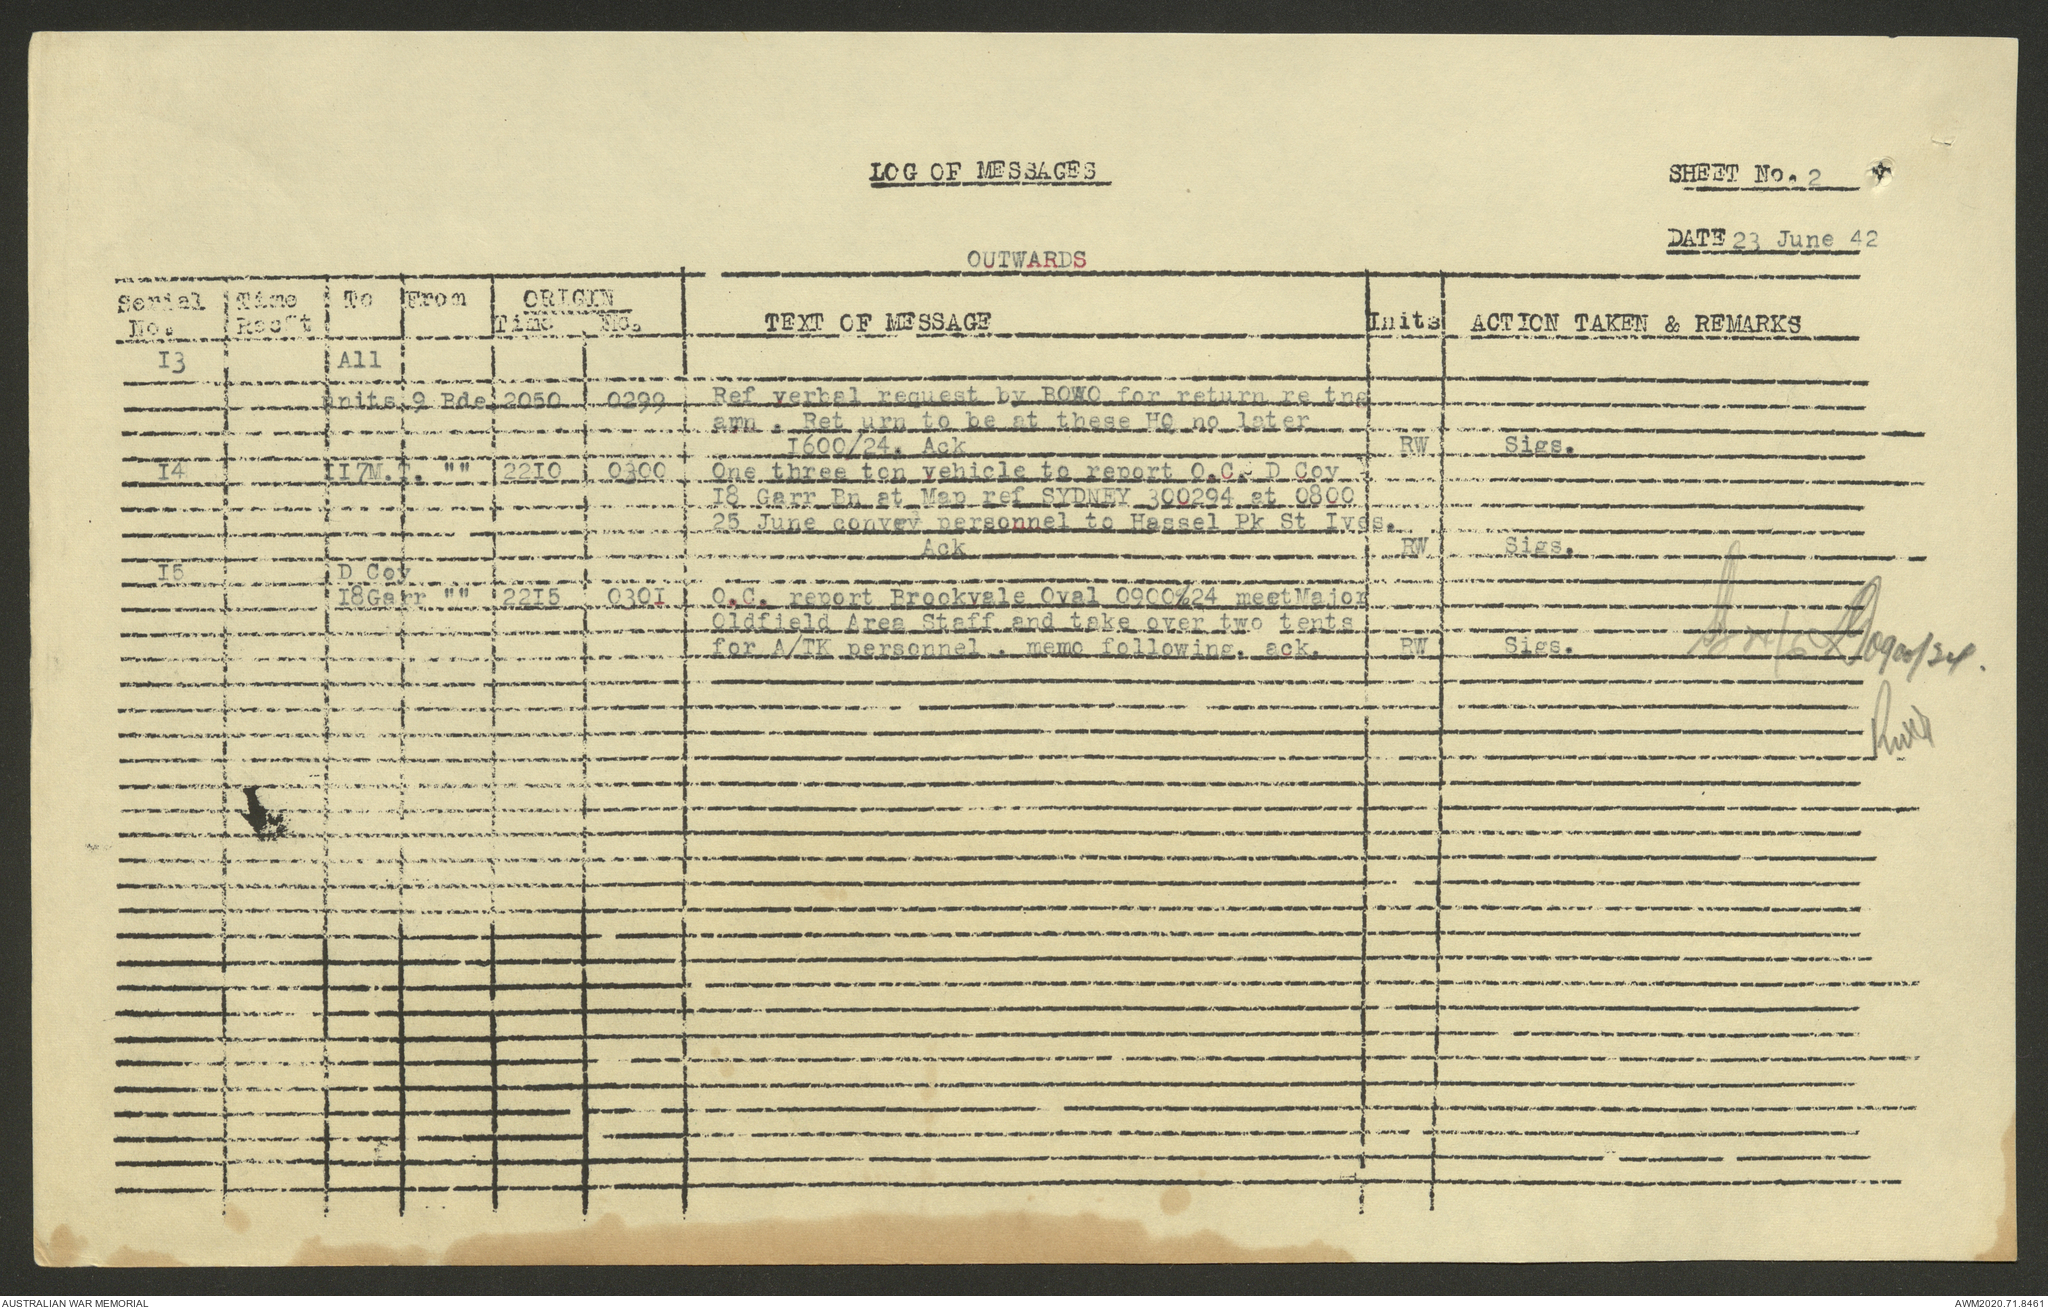 LOG OF MESSAGES
SHEET No. 2
DATE 23 June 42
OUTWARDS
Serial No. Time Recpt To From ORIGIN Time No. TEXT OF MESSAGE Inits ACTION TAKEN & REMARKS
I3 All
units 9 Bde 2050 0299 Ref verbal request by BOWO for return re tng
amn . Ret urn to be at these HQ no later
I600/24. Ack RW Sigs.
I4 II7M.T. "" 22I0 0300 One three ton vehicle to report O.C. D Coy
I8 Garr Bn at Map ref SYDNEY 300294 at 0800
25 June convey personnel to Hassel Pk St Ives.
Ack RW Sigs.
I5 D Coy
I8Garr "" 22I5 030I O.C. report Brookvale Oval 0900%24 meetMajor
Oldfield Area Staff and take over two tents
for A/TK personnel . memo following. ack. RW Sigs.
0900/24.
AUSTRALIAN WAR MEMORIAL
AWM2020.71.8461